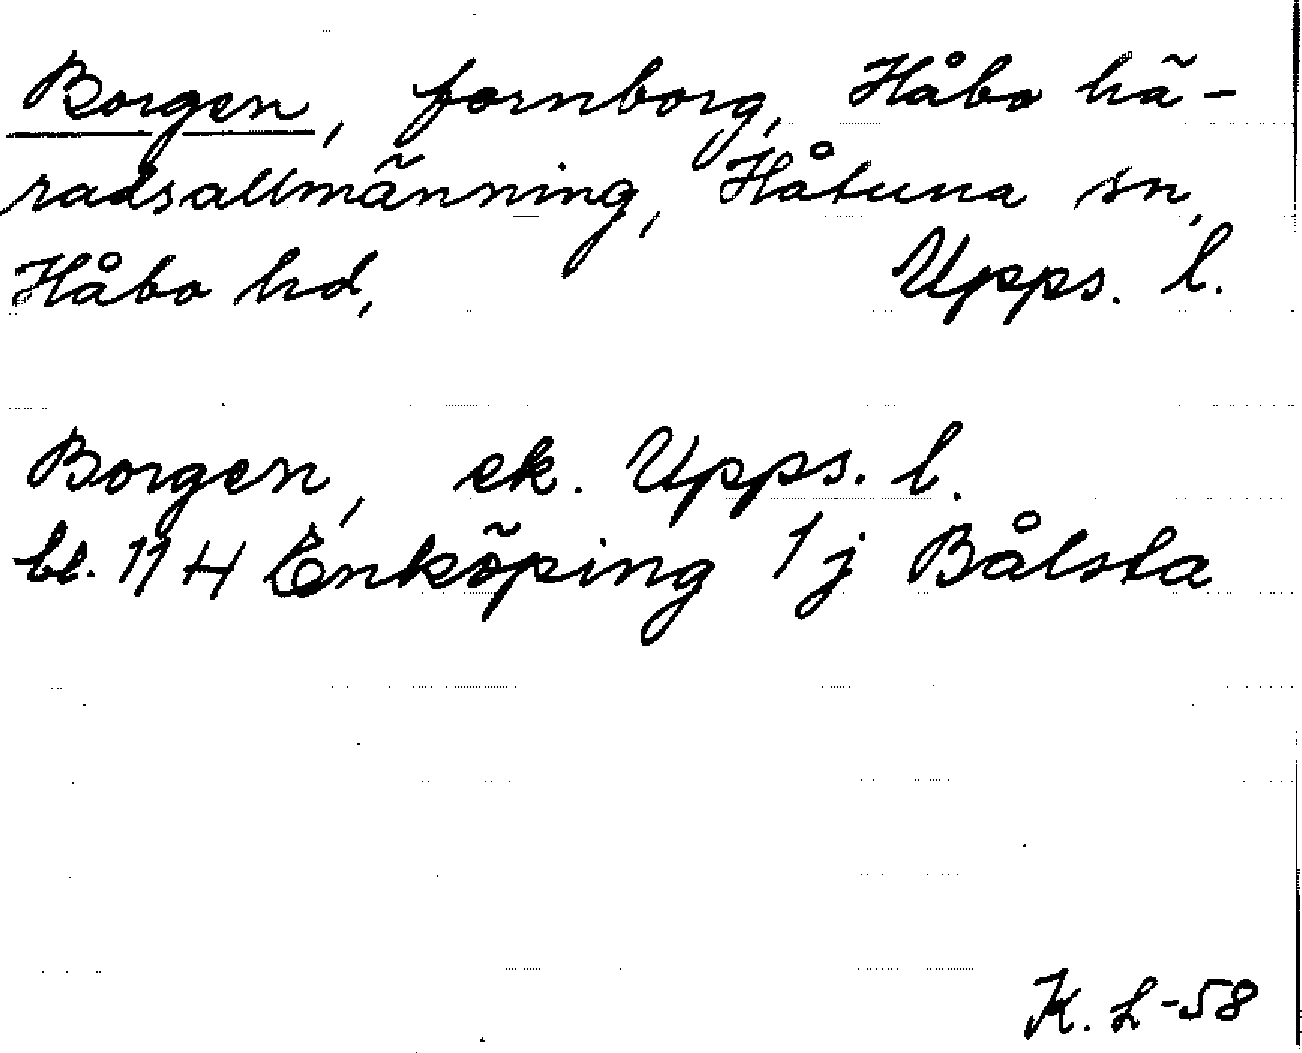 Borgen, fornborg, Håbo hä-
radsallmänning, Håtuna sn,
Håbo hd, Upps. l.
Borgen, ek. Upps. l.
bl. 11 H Enköping 1 j Bålsta
K. L-58